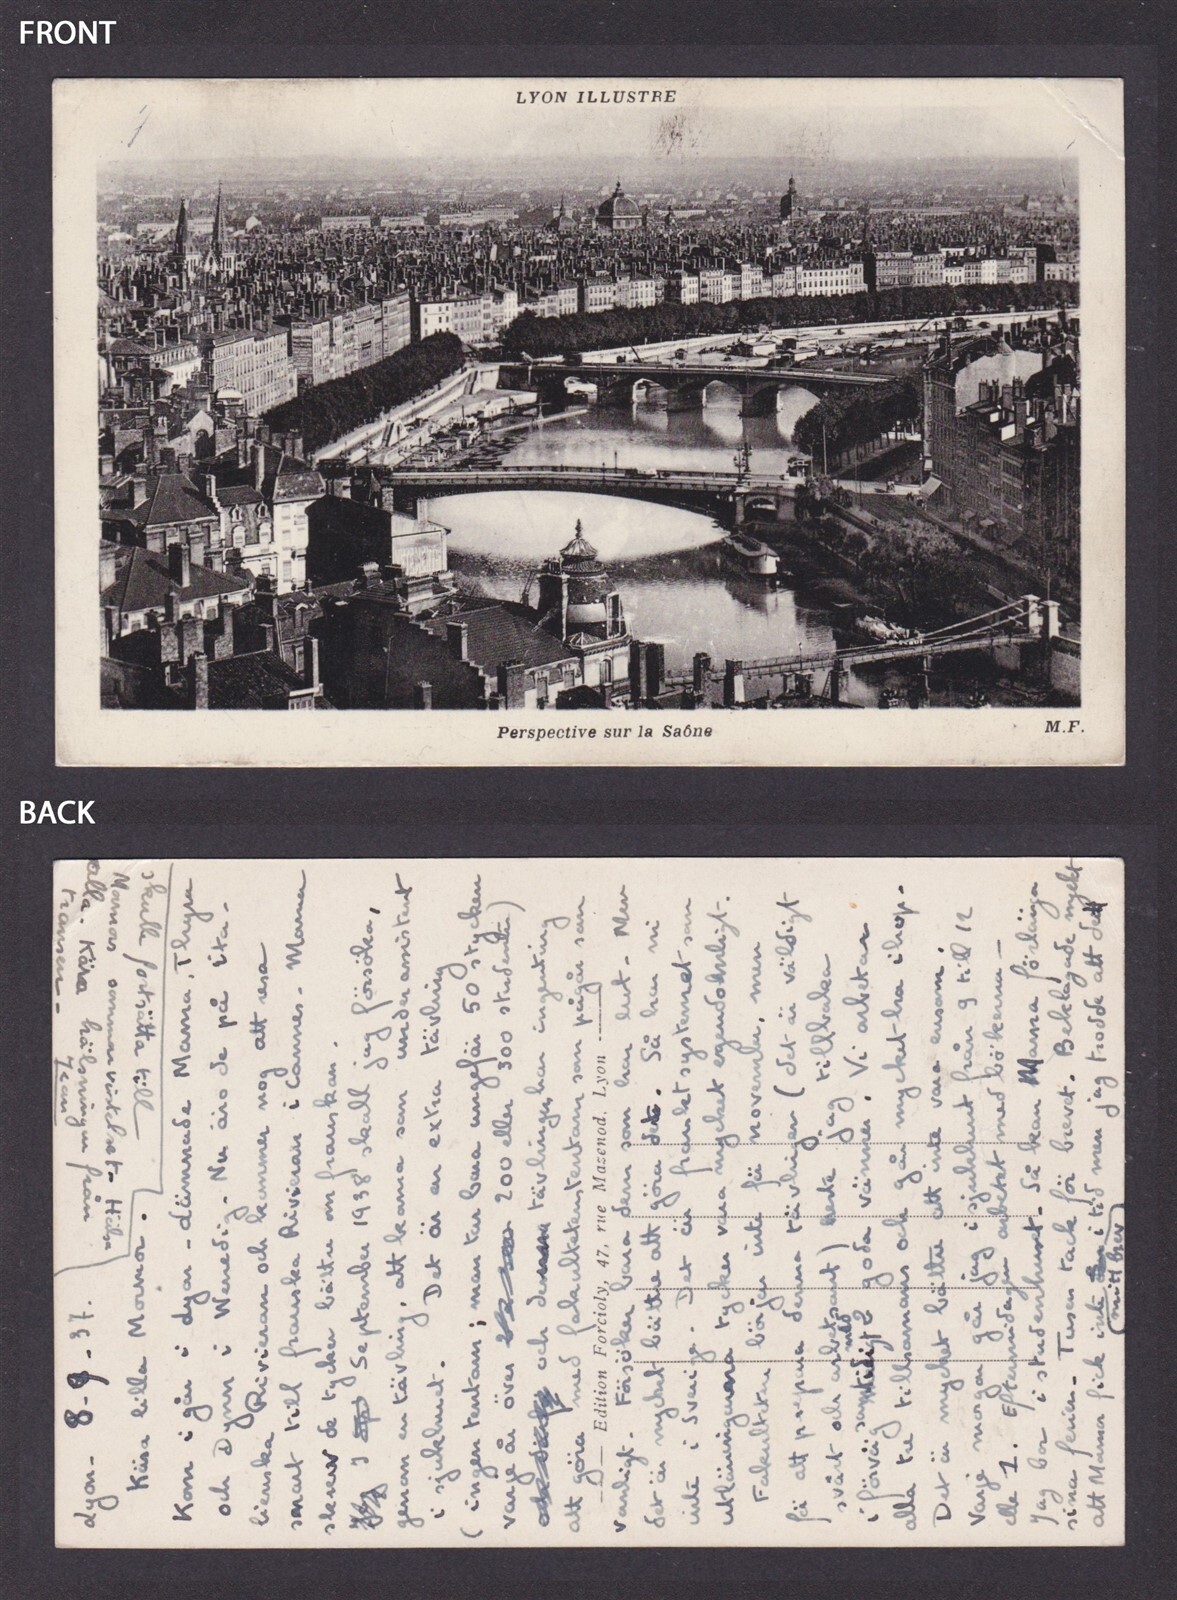 FRONT
LYON ILLUSTRE
Perspective sur la Saône
M.F.
BACK
Lyon - 8-9-37.
Kära lilla Mormor.
Kom i går i Lyon - lämnade Mama, Thyra
och Dynn i Wenedig. Nu äro de på ita-
lienska Rivieran och kommer nog att resa
snart till franska Rivieran i Cannes. Mama
skrev de tycker bättre om franskan.
I September 1938 skall jag försöka,
genom en tävling, att komma som underassistent
i sjukhuset. Det är en extra tävling
(ingen tentam; man tar bara ungefär 50 stycken
varje år över 200 eller 300 studenter)
och denna tävlingen har ingenting
att göra med fakultetstentam som pågår som
vanligt. Försöker bara dem som har lust. Men
det är mycket bättre att göra det. Så har ni
inte i Sverige. Det är fransket systemet som
utlänningarna tycker vara mycket egendomligt.
Fakulteten börjar inte för november, men
för att preparera denna tävlingen (det är väldigt
svårt och arbetsamt) jag tillbaka
i förväg samtidigt med 2 goda vänner. Vi arbetar
alla tre tillsamans och går mycket bra ihop.
Det är mycket bättre att inte vara ensam.
Varje morgon går jag i sjukhuset från 9 till 12
elle 1. Eftermiddagen arbetet med böckerna -
Jag bor i studenthuset. Så kan Mama förlänga
sina ferien - Tusen tack för brevet. Beklagade mycket
att Mamor fick inte i tid men jag trodde att det
mitt brev
skulle fortsätta till
Mamor sommarvistelset - Hälsa
alla. Kära hälsningar från
fransen -
Jean
Edition Forcioly, 47, rue Mazenod, Lyon